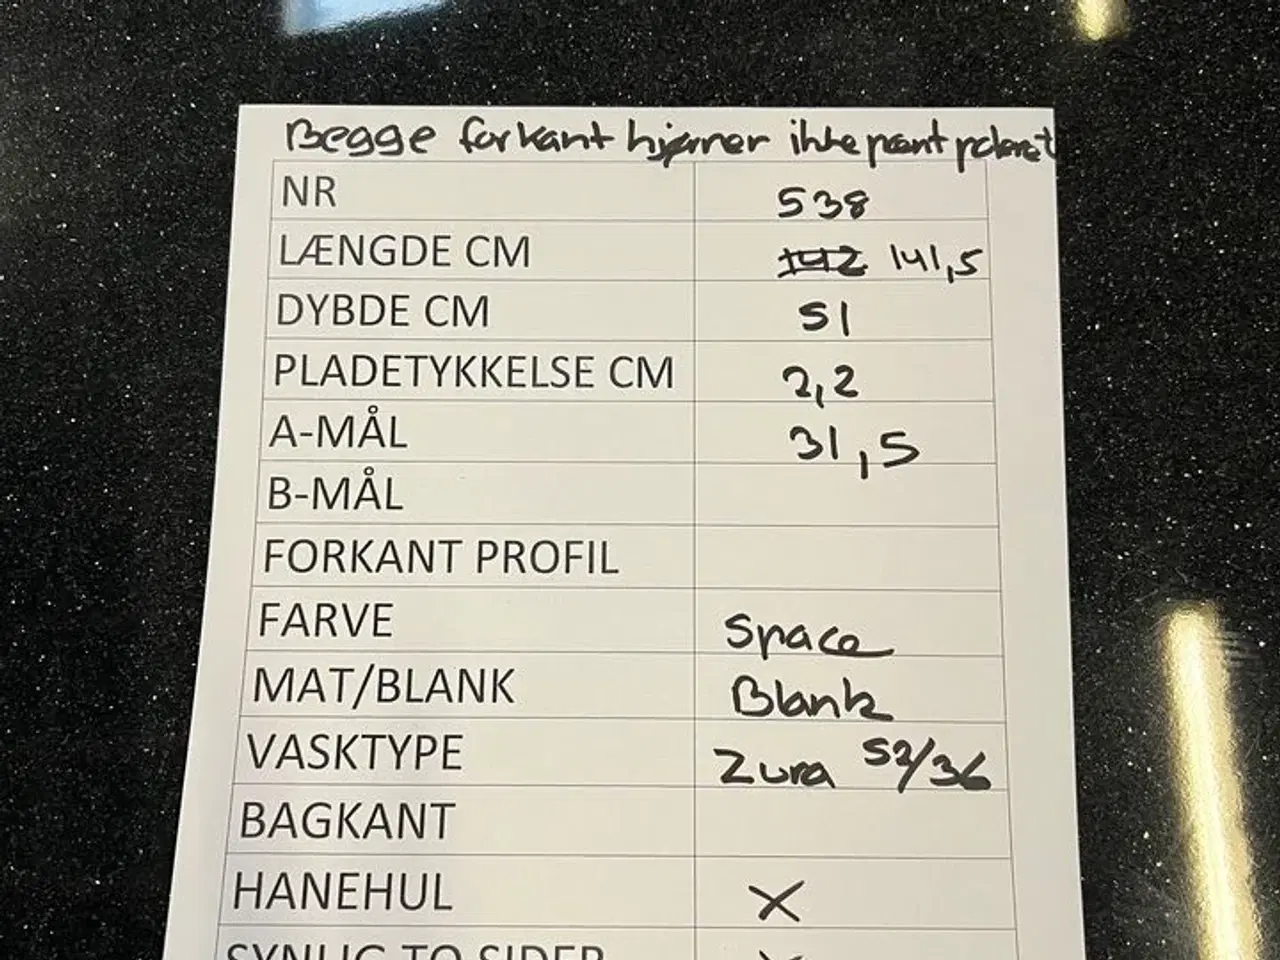 Begge forkant hjørner ikke pænt poleret
NR 538
LÆNGDE CM 142 141,5
DYBDE CM 51
PLADETYKKELSE CM 2,2
A-MÅL 31,5
B-MÅL
FORKANT PROFIL
FARVE Space
MAT/BLANK Blank
VASKTYPE Zura 52/36
BAGKANT
HANEHUL X
SYNLIG TO SIDER